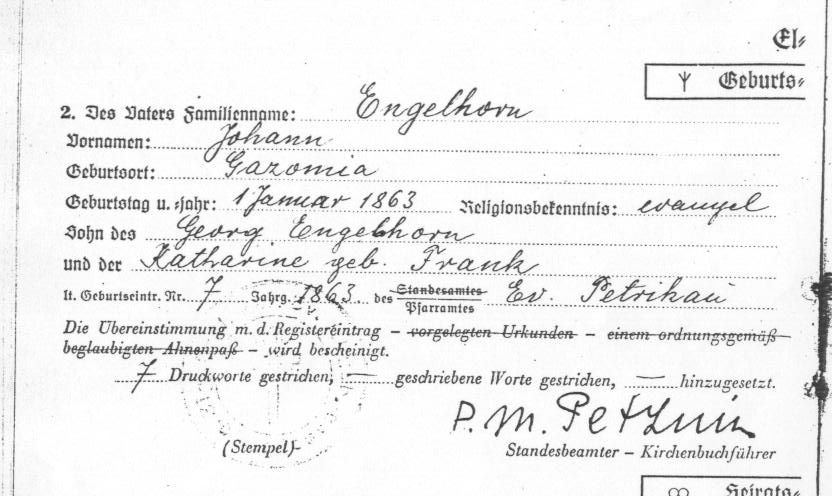 El=
Geburts=
2. Des Vaters Familienname: Engelhorn
Vornamen: Johann
Geburtsort: Gazomia
Geburtstag u. =jahr: 1 Januar 1863 Religionsbekenntnis: evangel
Sohn des Georg Engelhorn
und der Katharine geb. Frank
lt. Geburtseintr. Nr. 7 Jahrg. 1863 des Standesamtes Pfarramtes Ev. Petrikau
Die Übereinstimmung m. d. Registereintrag – vorgelegten Urkunden – einem ordnungsgemäß
beglaubigten Ahnenpaß – wird bescheinigt.
7 Druckworte gestrichen, — geschriebene Worte gestrichen, — hinzugesetzt.
P. M.
(Stempel)
Standesbeamter – Kirchenbuchführer
Heirats=